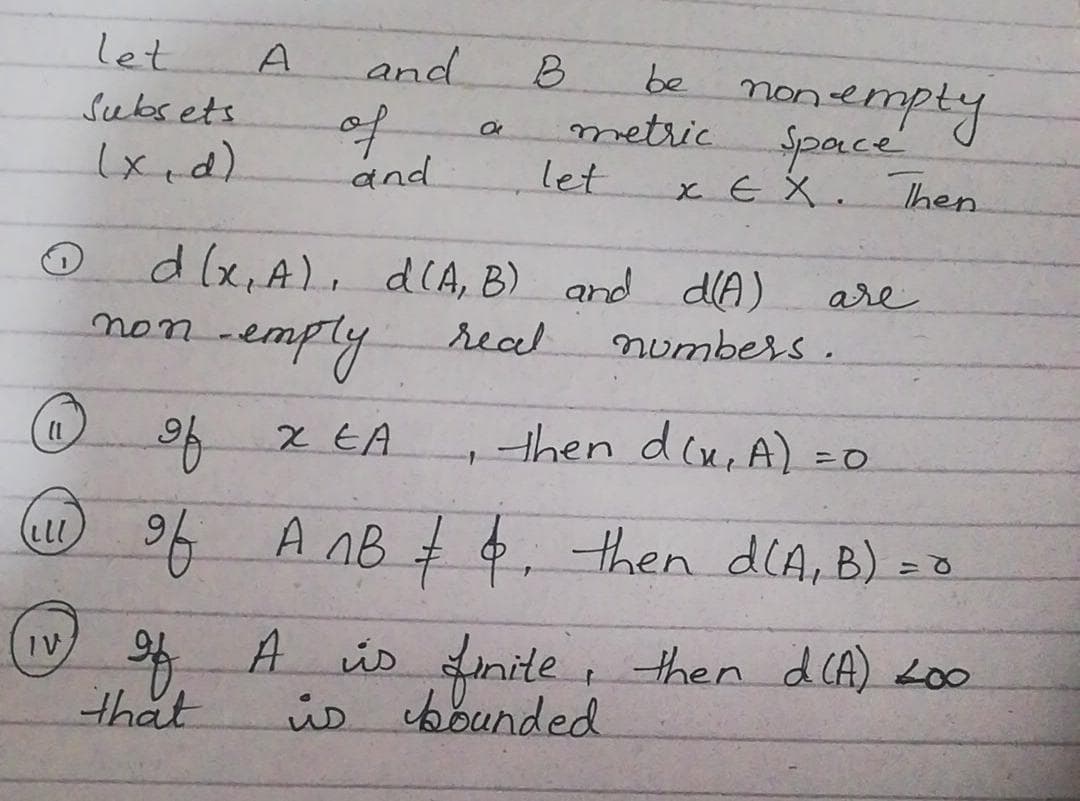 let A and B be non-empty
subsets of a metric space
(x, d) and let x ∈ X. Then
① d(x, A), d(A, B) and d(A) are
non-empty real numbers.
(ii) If x ∈ A, then d(x, A) = 0
(iii) If A ∩ B ≠ ϕ, then d(A, B) = 0
(iv) If A is finite, then d(A) < ∞
that is bounded